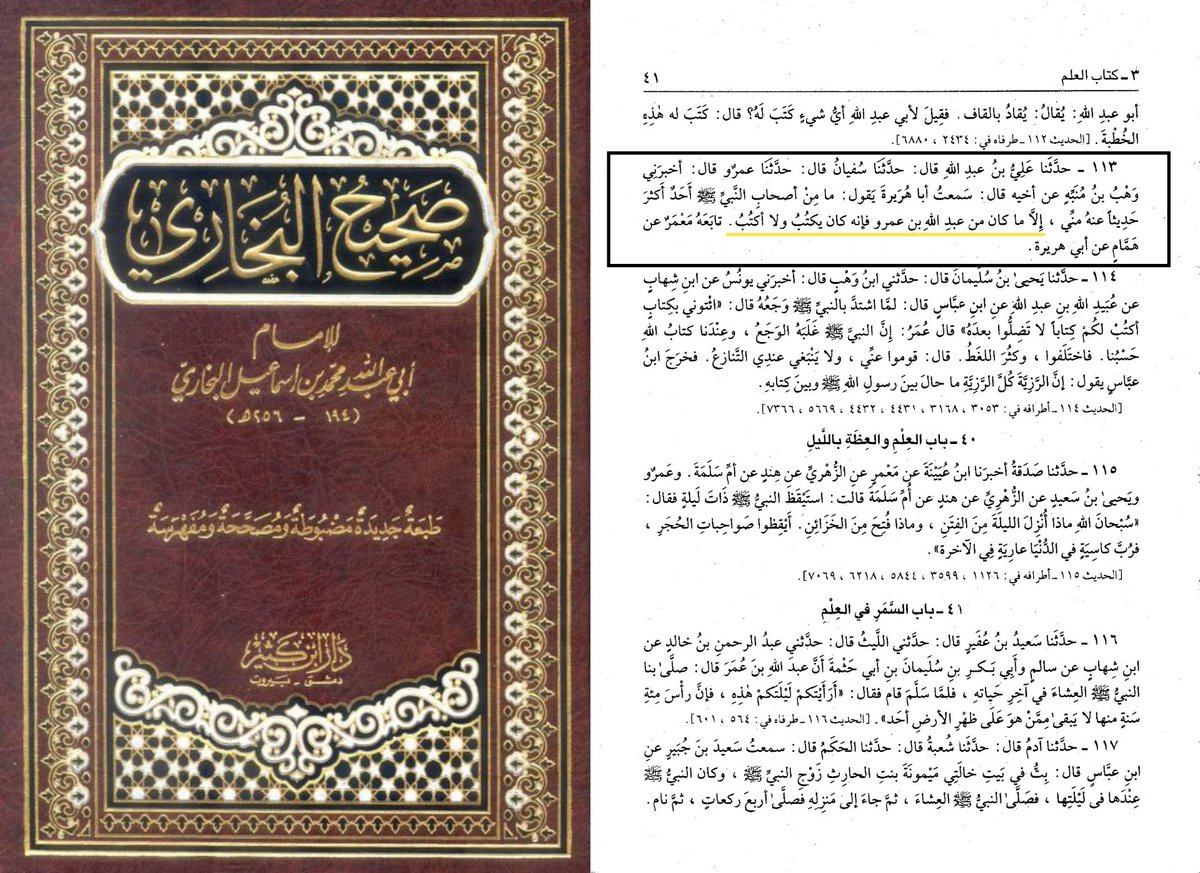 صَحِيحُ البُخَارِي
للإمام
أبي عبد الله محمد بن إسماعيل البخاري
(١٩٤ - ٢٥٦هـ)
طبعة جديدة مضبوطة ومصححة ومفهرسة
دار ابن كثير
دمشق - بيروت
٣ ـ كتاب العلم
٤١
أبو عبدِ اللهِ: يُقالُ: يُقادُ بالقاف. فقِيلَ لأبي عبدِ اللهِ أيُّ شيءٍ كَتَبَ لَهُ؟ قال: كَتَبَ له هٰذِهِ
الخُطْبةَ. [الحديث ١١٢ ـ طرفاه في: ٢٤٣٤ ، ٦٨٨٠].
١١٣ ـ حدَّثَنا عَلِيُّ بنُ عبدِ اللهِ قال: حدَّثَنا سُفيانُ قال: حدَّثَنا عمرٌو قال: أخبرَني
وَهْبُ بنُ مُنَبِّهٍ عن أخيه قال: سَمعتُ أبا هُرَيرةَ يَقول: ما مِنْ أصحابِ النَّبيِّ ﷺ أَحَدٌ أكثرَ
حَدِيثاً عنهُ منِّي ، إلَّا ما كان من عبدِ اللهِ بن عمرو فإنه كان يكتُبُ ولا أكتُبُ. تابَعَهُ مَعْمَرٌ عن
هَمَّامٍ عن أبي هريرة.
١١٤ ـ حدَّثنا يَحيىٰ بنُ سُلَيمانَ قال: حدَّثني ابنُ وَهْبٍ قال: أخبرَني يونُسُ عن ابنِ شِهابٍ
عن عُبَيدِ اللهِ بنِ عبدِ اللهِ عنِ ابنِ عبَّاسٍ قال: لمَّا اشتدَّ بالنبيِّ ﷺ وَجَعُهُ قال: «ائْتوني بكِتابٍ
أكتُبْ لكُمْ كِتاباً لا تَضِلُّوا بعدَهُ» قال عُمَرُ: إنَّ النبيَّ ﷺ غَلَبَهُ الوَجَعُ ، وعِنْدَنا كتابُ اللهِ
حَسْبُنا. فاختَلَفوا ، وكثُرَ اللغَطُ. قال: قوموا عنِّي ، ولا يَنْبَغي عندِي التَّنازعُ. فخرجَ ابنُ
عبَّاسٍ يقول: إنَّ الرَّزِيَّةَ كُلَّ الرَّزِيَّةِ ما حالَ بينَ رسولِ اللهِ ﷺ وبينَ كتابِهِ.
[الحديث ١١٤ ـ أطرافه في: ٣٠٥٣ ، ٣١٦٨ ، ٤٤٣١ ، ٤٤٣٢ ، ٥٦٦٩ ، ٧٣٦٦].
٤٠ ـ باب العِلْمِ والعِظَةِ بِاللَّيلِ
١١٥ ـ حدَّثنا صَدَقةُ أخبرَنا ابنُ عُيَيْنَةَ عن مَعْمَرٍ عنِ الزُّهْرِيِّ عن هِندٍ عن أمِّ سَلَمَةَ. وعَمرٌو
ويَحيىٰ بنُ سَعيدٍ عنِ الزُّهْرِيِّ عن هندٍ عن أُمِّ سَلَمَةَ قالت: استَيْقَظَ النبيُّ ﷺ ذَاتَ لَيلةٍ فقال:
«سُبْحانَ اللهِ ماذا أُنْزِلَ الليلةَ مِنَ الفِتَنِ ، وماذا فُتِحَ مِنَ الخَزَائِنِ. أيْقِظوا صَواحِباتِ الحُجَرِ ،
فرُبَّ كاسِيَةٍ في الدُّنْيَا عارِيَةٍ فِي الآخرة».
[الحديث ١١٥ ـ أطرافه في: ١١٢٦ ، ٣٥٩٩ ، ٥٨٤٤ ، ٦٢١٨ ، ٧٠٦٩].
٤١ ـ باب السَّمَرِ في العِلْمِ
١١٦ ـ حدَّثَنا سَعيدُ بنُ عُفَيرٍ قال: حدَّثَني اللَّيثُ قال: حدَّثَني عبدُ الرحمنِ بنُ خالدٍ عن
ابنِ شِهابٍ عن سالمٍ وأَبِي بَكرِ بنِ سُلَيمانَ بنِ أبي حَثْمةَ أنَّ عبدَ اللهِ بنَ عُمَرَ قال: صلَّى بنا
النبيُّ ﷺ العِشاءَ في آخِرِ حَياتِه ، فلمَّا سَلَّمَ قام فقال: «أَرَأَيْتَكمْ لَيْلَتَكمْ هٰذِهِ ، فإنَّ رأْسَ مِئةِ
سَنةٍ منها لا يَبقىٰ مِمَّنْ هوَ عَلَى ظهْرِ الأرضِ أحَد». [الحديث ١١٦ ـ طرفاه في: ٥٦٤ ، ٦٠١].
١١٧ ـ حدَّثنا آدمُ قال: حدَّثنا شُعبةُ قال: حدَّثنا الحَكَمُ قال: سمعتُ سَعيدَ بنَ جُبَيرٍ عنِ
ابن عبَّاسٍ قال: بِتُّ في بَيتِ خالَتِي مَيْمونةَ بنتِ الحارِثِ زَوْجِ النبيِّ ﷺ ، وكان النبيُّ ﷺ
عِنْدَها في لَيْلَتِها ، فصَلَّىٰ النبيُّ ﷺ العِشاءَ ، ثمَّ جاءَ إلى مَنزِلِهِ فصلَّىٰ أربعَ ركعاتٍ ، ثمَّ نام.